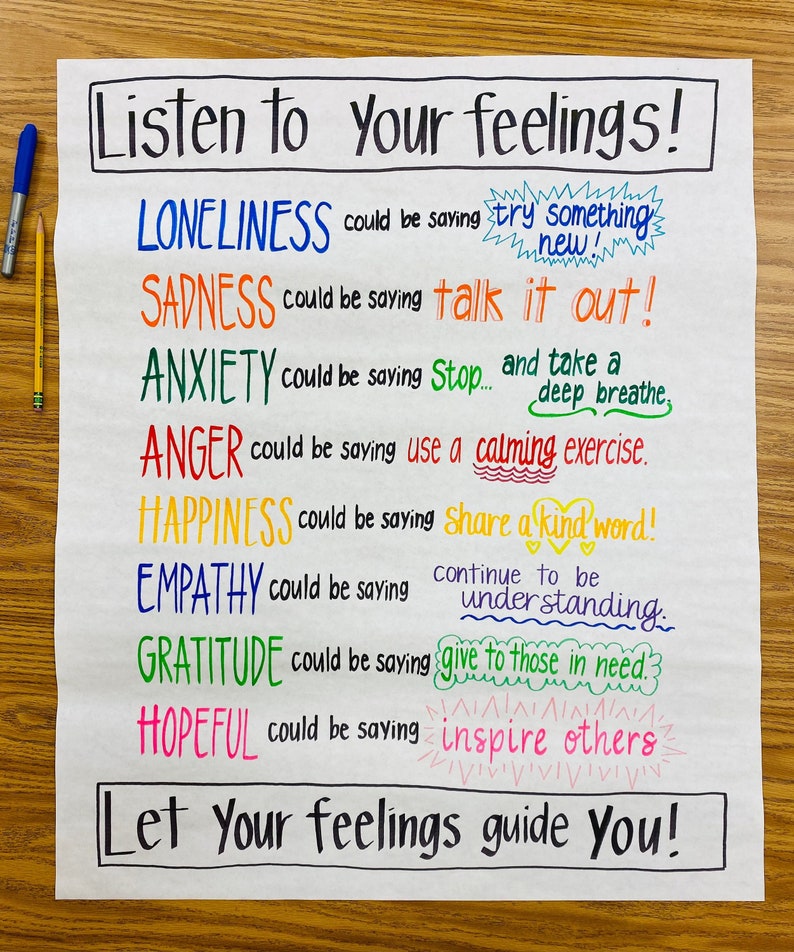 Listen to your feelings!
LONELINESS could be saying try something new!
SADNESS could be saying talk it out!
ANXIETY could be saying Stop... and take a deep breathe.
ANGER could be saying use a calming exercise.
HAPPINESS could be saying share a kind word!
EMPATHY could be saying continue to be understanding.
GRATITUDE could be saying give to those in need.
HOPEFUL could be saying inspire others
Let your feelings guide you!